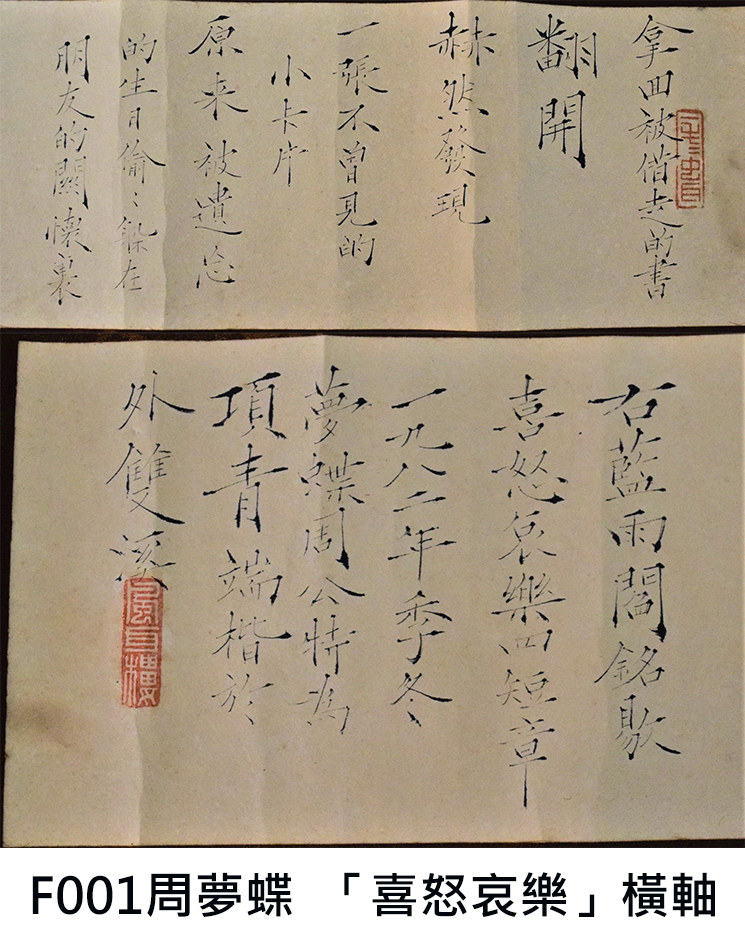 拿回被借走的書
翻開
赫然發現
一張不曾見的
小卡片
原来被遺忘
的生日偷〻躲在
朋友的關懷裏
右藍雨閻銘
喜怒哀樂四短章
一九八二年季冬
夢蝶周公特為
項青端楷於
外雙溪
風耳樓
F001周夢蝶 「喜怒哀樂」橫軸